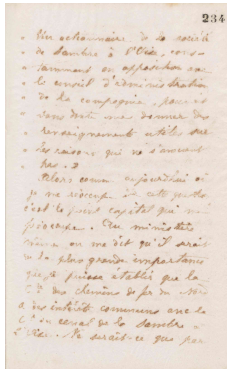 234
" Un actionnaire de la société
" de Sambre à l'Oise, cons-
" tamment en opposition avec
" le conseil d'administration
" de la compagnie, pourra
" sans doute me donner des
" renseignements utiles sur
" les raisons qui
pas. "
Alors comme aujourd'hui où
je me réoccupe de cette
c'est le point capital qui me
préoccupe. Au ministère
même on me dit qu'il serait
de la plus grande importance
que je puisse établir que la
Cie des chemins de fer du Nord
a des intérêts communs avec la
Cie du canal de la Sambre à
l'Oise. Ne serait-ce que par